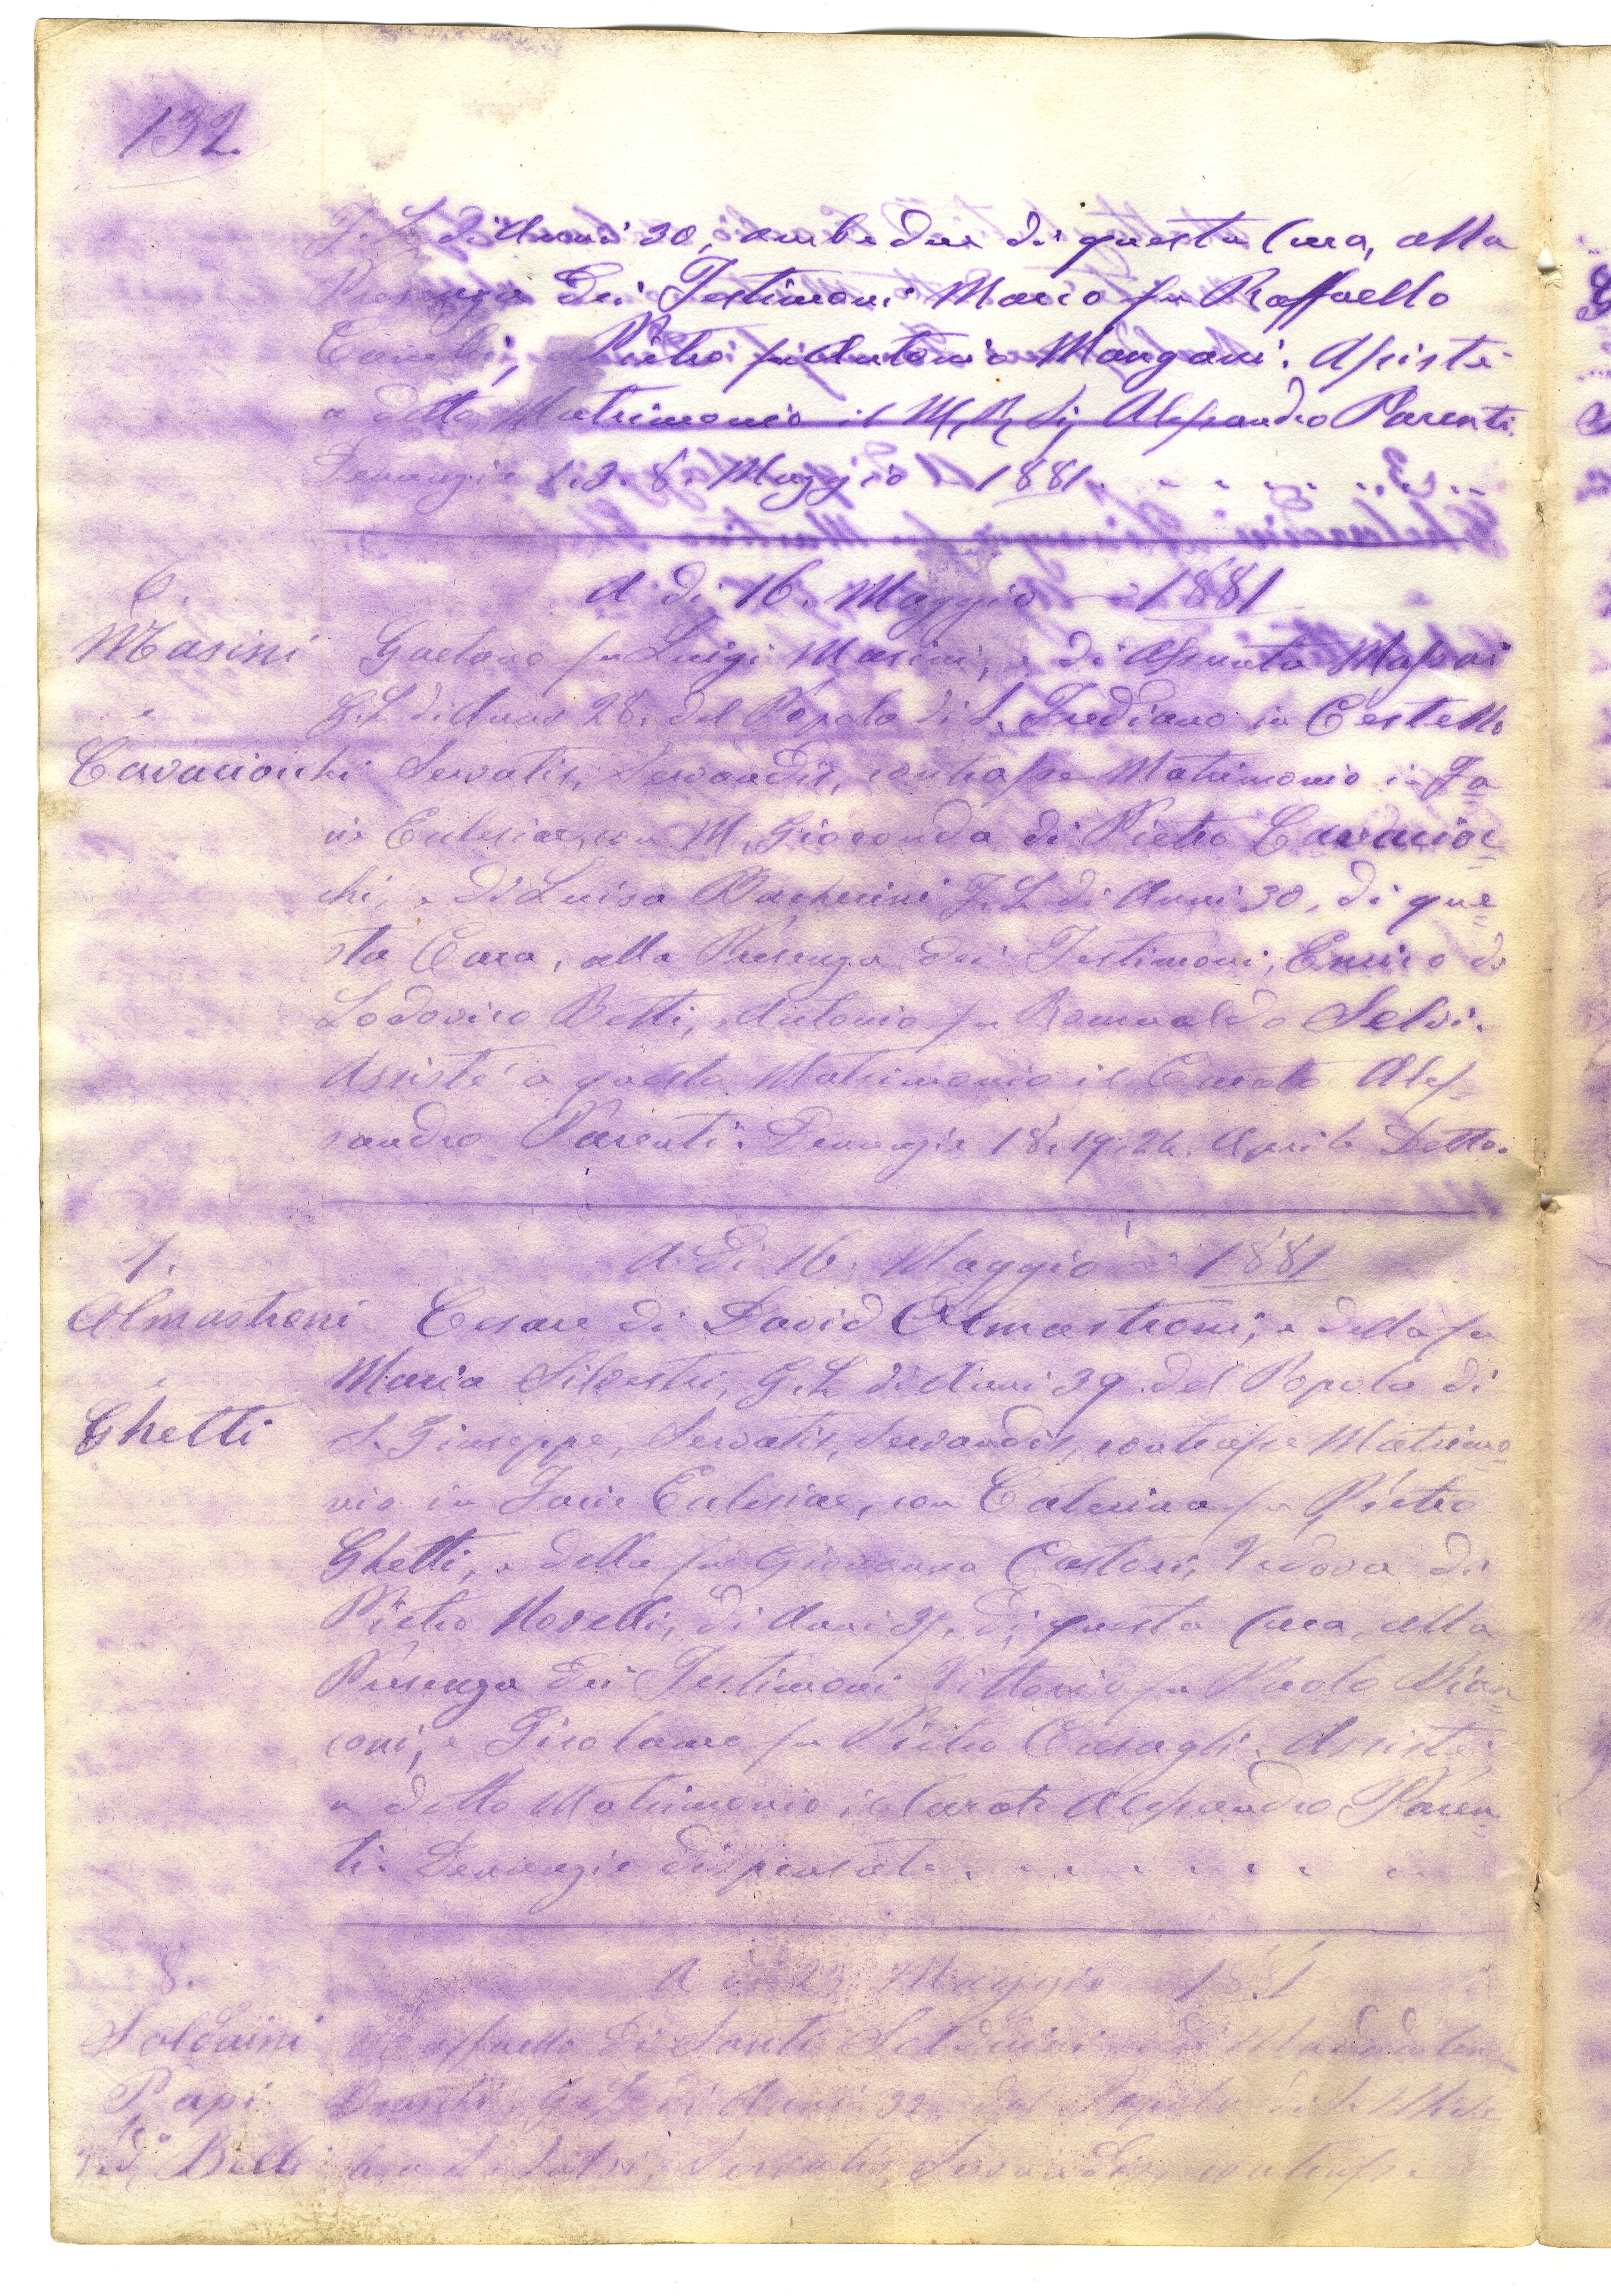 132.
F. L. di Anni 30, ambedue di questa Cura, alla
Presenza Dei Testimoni Marco fu Raffaello
Pietro fu Antonio Mangani. Assistè
a detto Matrimonio il M. R. Sig. Alessandro Parenti.
Denunzie 1. 3. 8. Maggio 1881.
6.
A di 16. Maggio 1881
Masini
Gaetano fu Luigi Masini, e di Assunta Massai
e
G. L. di Anni 28. del Popolo di S. Frediano in Cestello
Cavaciocchi
Servatis, Servandis, contrasse Matrimonio in Fa
cie Eclesiae, con M. Gioconda di Pietro Cavacioc
chi, e di Luisa Pacherini F. L. di Anni 30, di que
sta Cura, alla Presenza dei Testimoni, Enrico di
Lodovico Betti, Antonio fu Romualdo Selvi.
Assistè a questo Matrimonio il Curato Ales
sandro Parenti. Denunzie 18. 19. 24. Aprile Detto.
7.
A Di 16. Maggio 1881
Almastroni
Cesare di David Almastroni, e della fu
e
Maria Silvestri, G. L. di Anni 39. del Popolo di
Ghetti
S. Giuseppe, Servatis, Servandis, contrasse Matrimo
nio in Facie Eclesiae, con Caterina fu Pietro
Ghetti, e della fu Giovanna Castori, Vedova di
Pietro Novelli, di Anni di questa Cura, alla
Presenza Dei Testimoni Vittorio fu Paolo Bian
coni, e Girolamo fu Pietro Casagli. Assistè
a detto Matrimonio il Curato Alessandro Paren
ti. Denunzie dispensate.
8.
A di 23 Maggio 1881
Solduini
Raffaello di Santi Solduini e di Maddalena
Papi
G. L. di Anni 32. del Popolo di S. Miche
Ved.ª Belli
Servatis, Servandis, contrasse